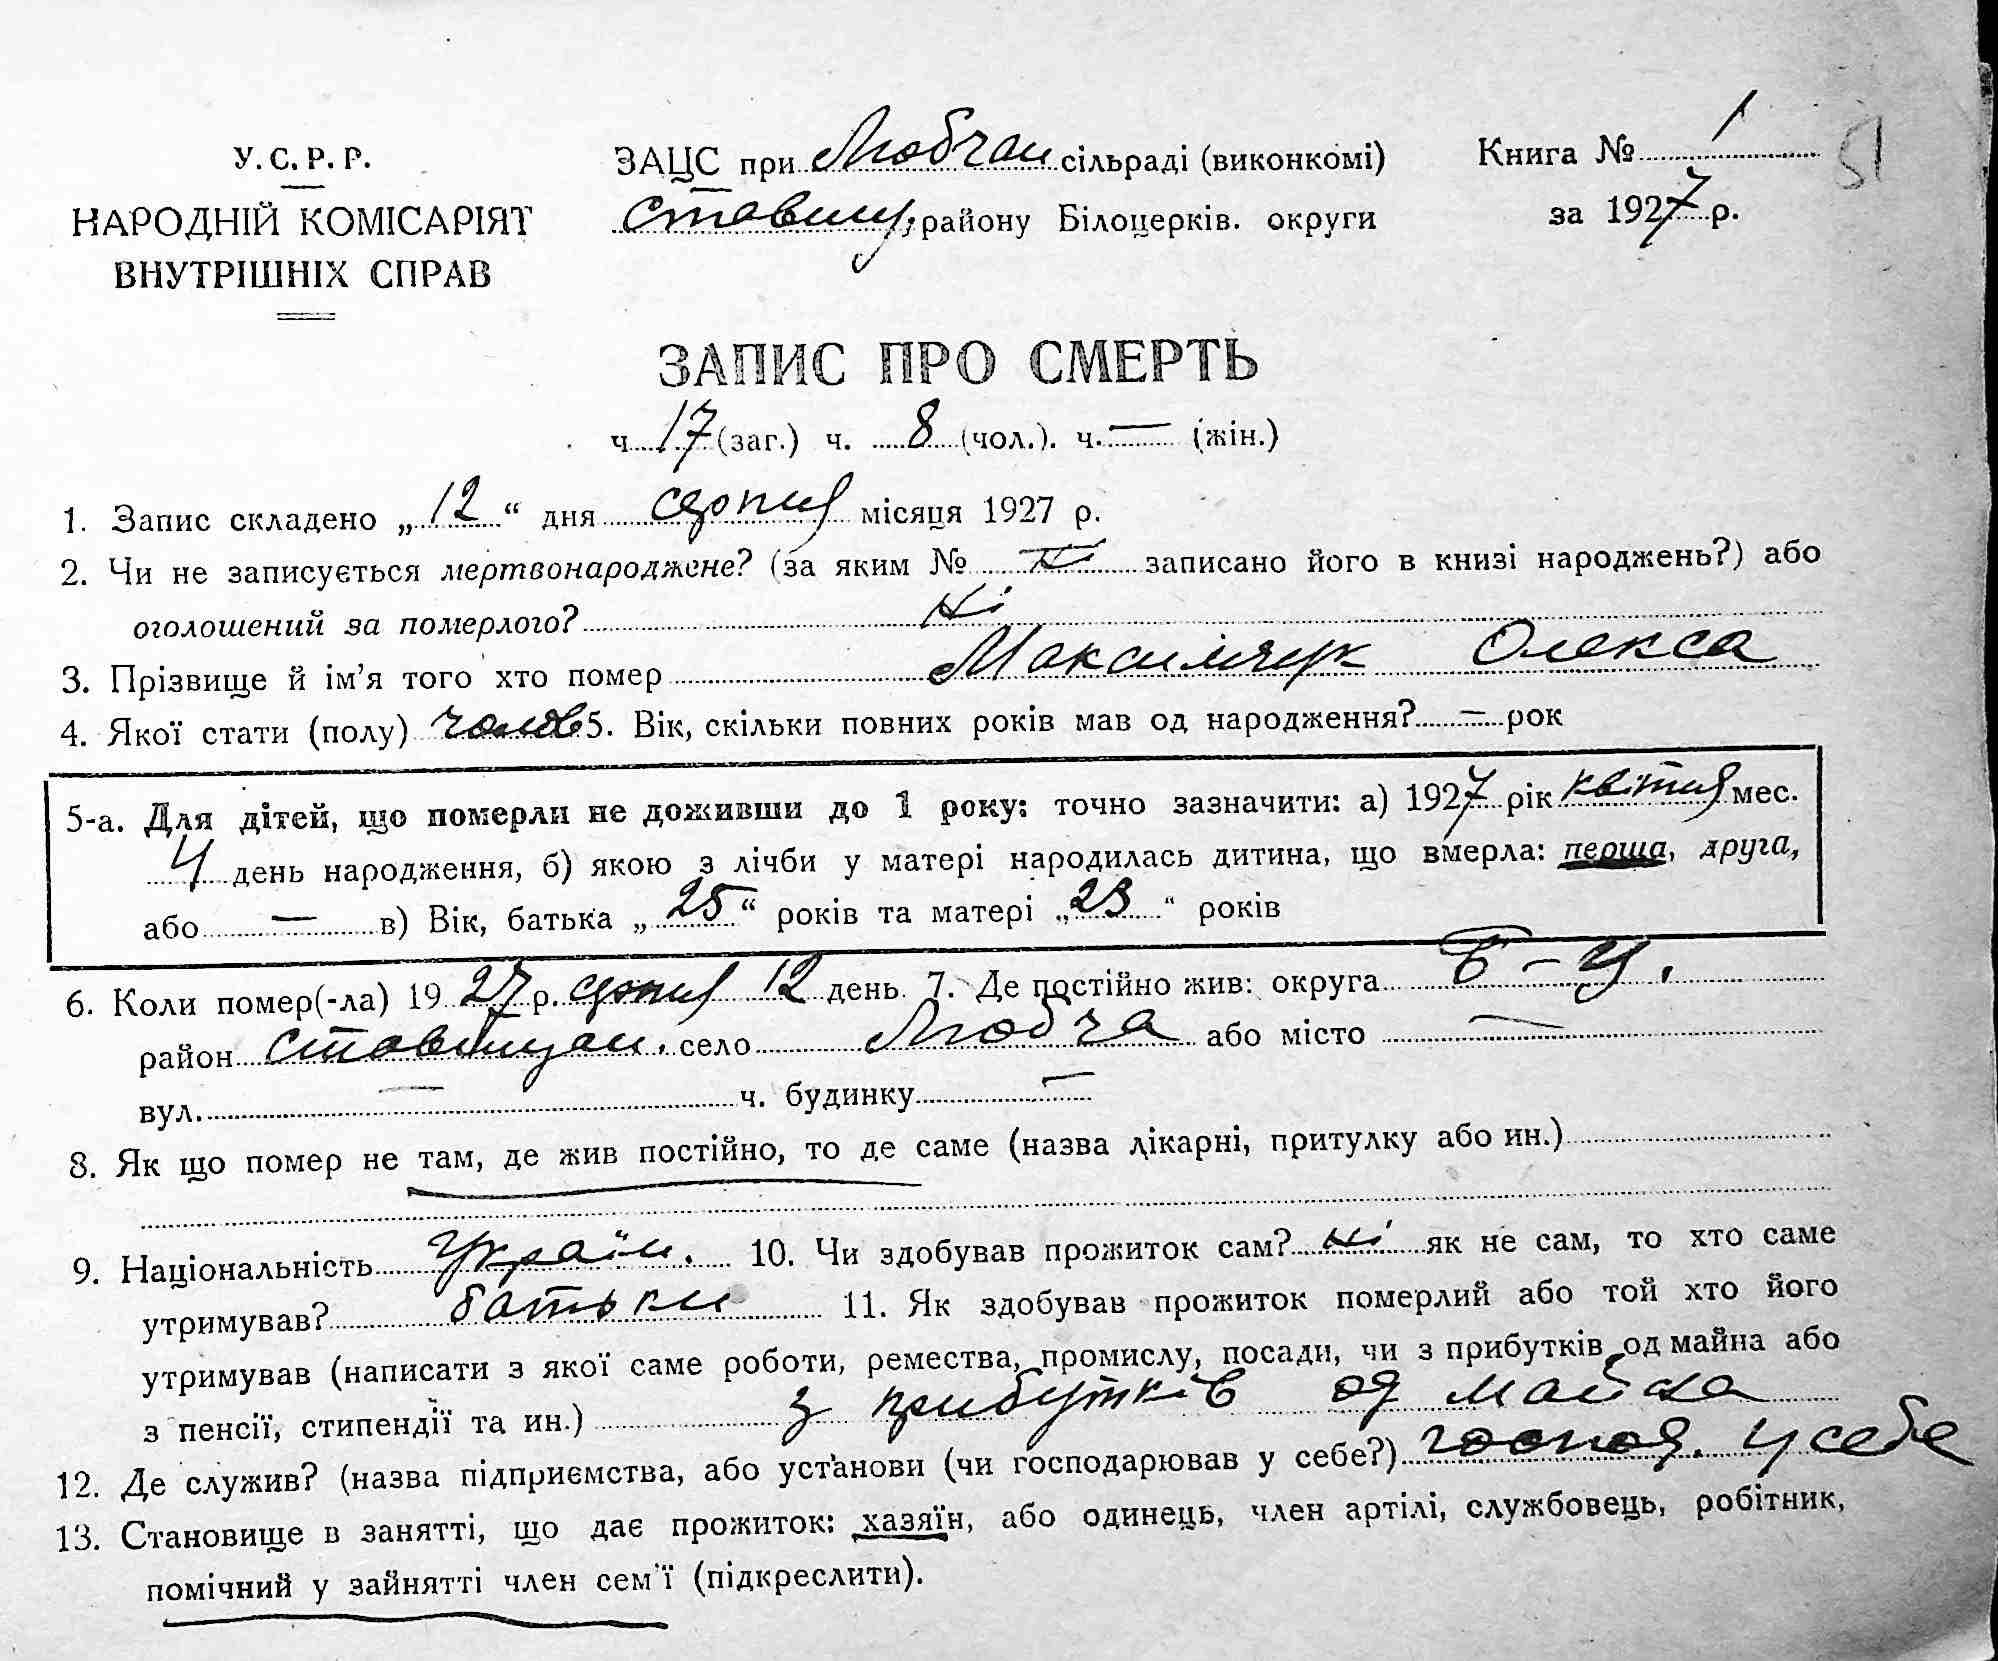 У. С. Р. Р.
НАРОДНІЙ КОМІСАРІЯТ
ВНУТРІШНІХ СПРАВ
ЗАЦС при Любчан сільраді (виконкомі)
Ставищ. району Білоцерків. округи
Книга № 1
за 1927 р.
15
ЗАПИС ПРО СМЕРТЬ
ч 17 (заг.) ч. 8 (чол.). ч. — (жін.)
1. Запис складено „12“ дня серпня місяця 1927 р.
2. Чи не записується мертвонароджене? (за яким № ні записано його в книзі народжень?) або
оголошений за померлого? ні
3. Прізвище й ім’я того хто помер Максимчук Олекса
4. Якої стати (полу) чолов 5. Вік, скільки повних років мав од народження? — рок
5-а. Для дітей, що померли не доживши до 1 року: точно зазначити: а) 1927 рік квітня мес.
4 день народження, б) якою з лічби у матері народилась дитина, що вмерла: перша, друга,
або — в) Вік, батька „25“ років та матері „23“ років
6. Коли помер(-ла) 1927 р. серпня 12 день 7. Де постійно жив: округа Б-Ц.
район Ставищан. село Любча або місто —
вул. — ч. будинку —
8. Як що помер не там, де жив постійно, то де саме (назва лікарні, притулку або ин.)
9. Національність Україн. 10. Чи здобував прожиток сам? ні як не сам, то хто саме
утримував? батьки 11. Як здобував прожиток померлий або той хто його
утримував (написати з якої саме роботи, ремества, промислу, посади, чи з прибутків од майна або
з пенсії, стипендії та ин.) з прибутків од майна
12. Де служив? (назва підприємства, або установи (чи господарював у себе?) господ. у себе
13. Становище в занятті, що дає прожиток: хазяїн, або одинець, член артілі, службовець, робітник,
помічний у зайнятті член сем’ї (підкреслити).